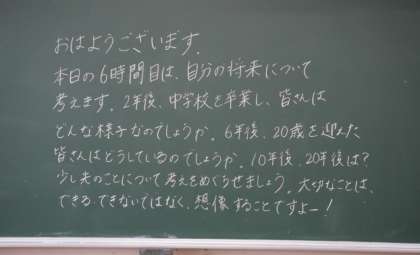 おはようございます.
本日の6時間目は、自分の将来について
考えます。2年後、中学校を卒業し、皆さんは
どんな様子なのでしょうか。6年後、20歳を迎えた
皆さんはどうしているのでしょうか。10年後、20年後は?
少し先のことについて考えをめぐらせましょう。大切なことは、
できるできないではなく、想像することですよー!